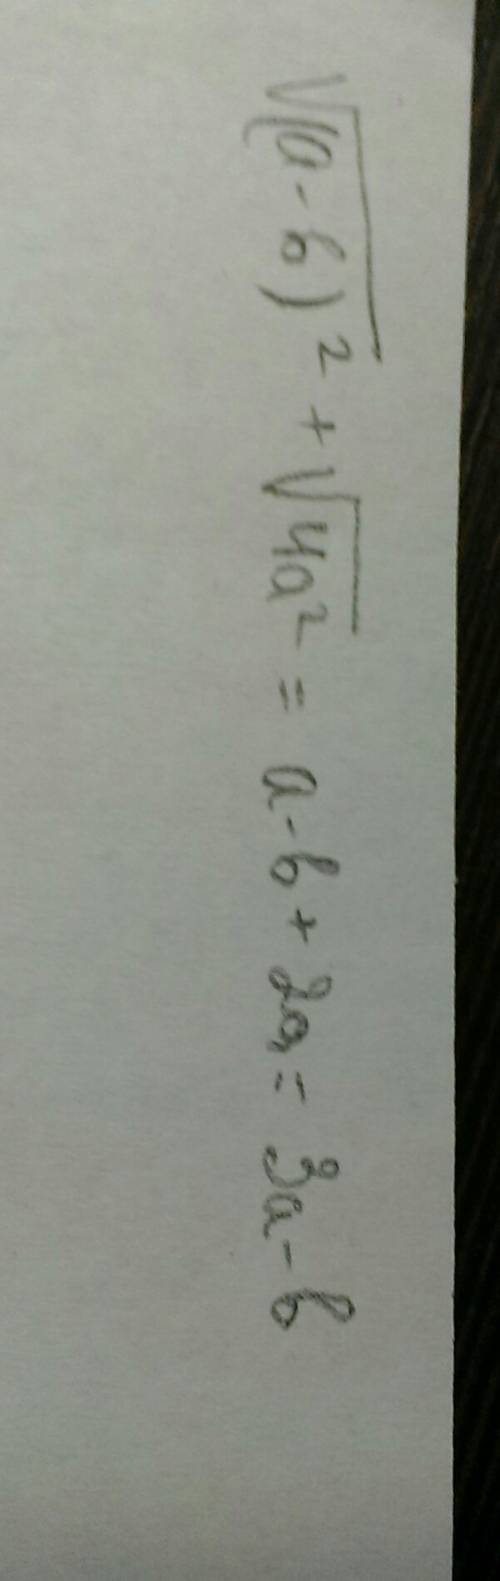 √(a-b)² + √4a² = a-b+2a = 3a-b